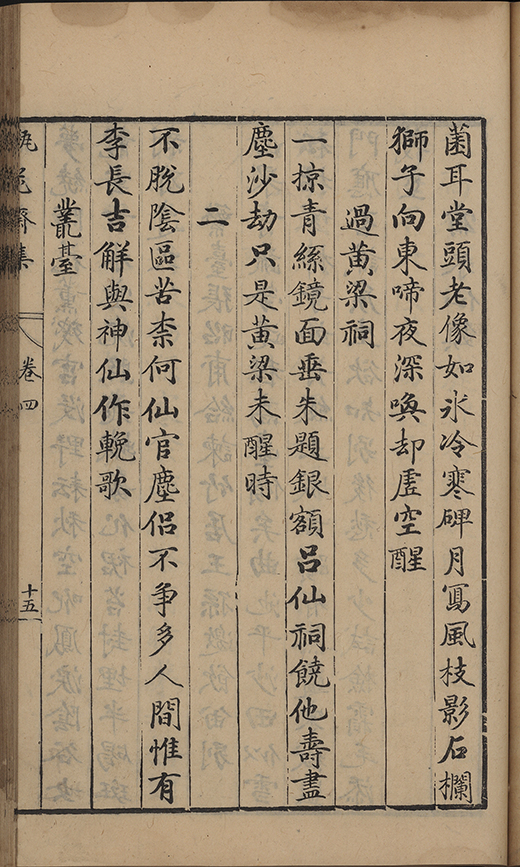 菌耳堂頭老像如氷冷寒碑月寫風枝影石欄
獅子向東啼夜深喚却虛空醒
過黃梁祠
一掠青絲鏡面垂朱題銀額呂仙祠饒他壽盡
塵沙劫只是黃梁未醒時
二
不脫陰區苦柰何仙官塵侶不爭多人間惟有
李長吉解與神仙作輓歌
叢臺
齋集
卷四
十五